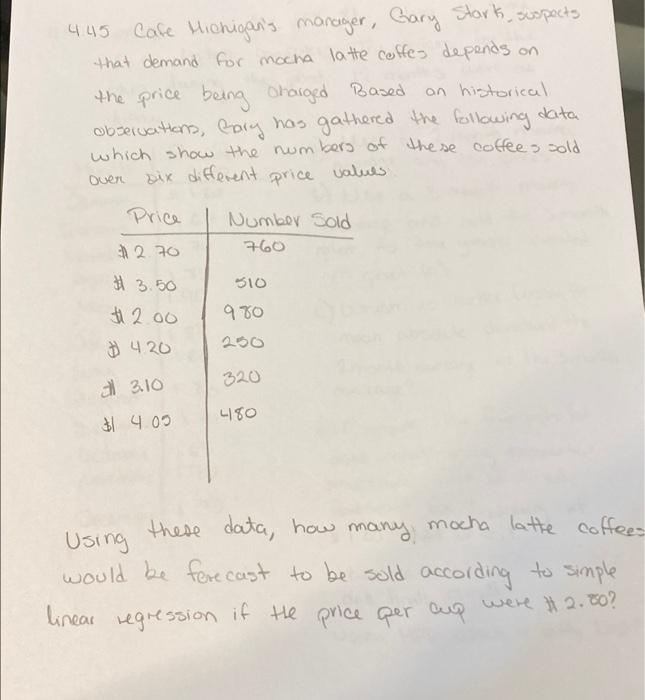 4.45 Cafe Michigan's manager, Gary Stark, suspects
that demand for mocha latte coffes depends on
the price being charged Based on historical
observations, Gary has gathered the following data
which show the numbers of these coffees sold
over six different price values.
Price Number Sold
$ 2.70 760
$ 3.50 510
$ 2.00 980
$ 4.20 250
$ 3.10 320
$ 4.05 480
Using these data, how many mocha latte coffees
would be forecast to be sold according to simple
linear regression if the price per cup were $ 2.80?